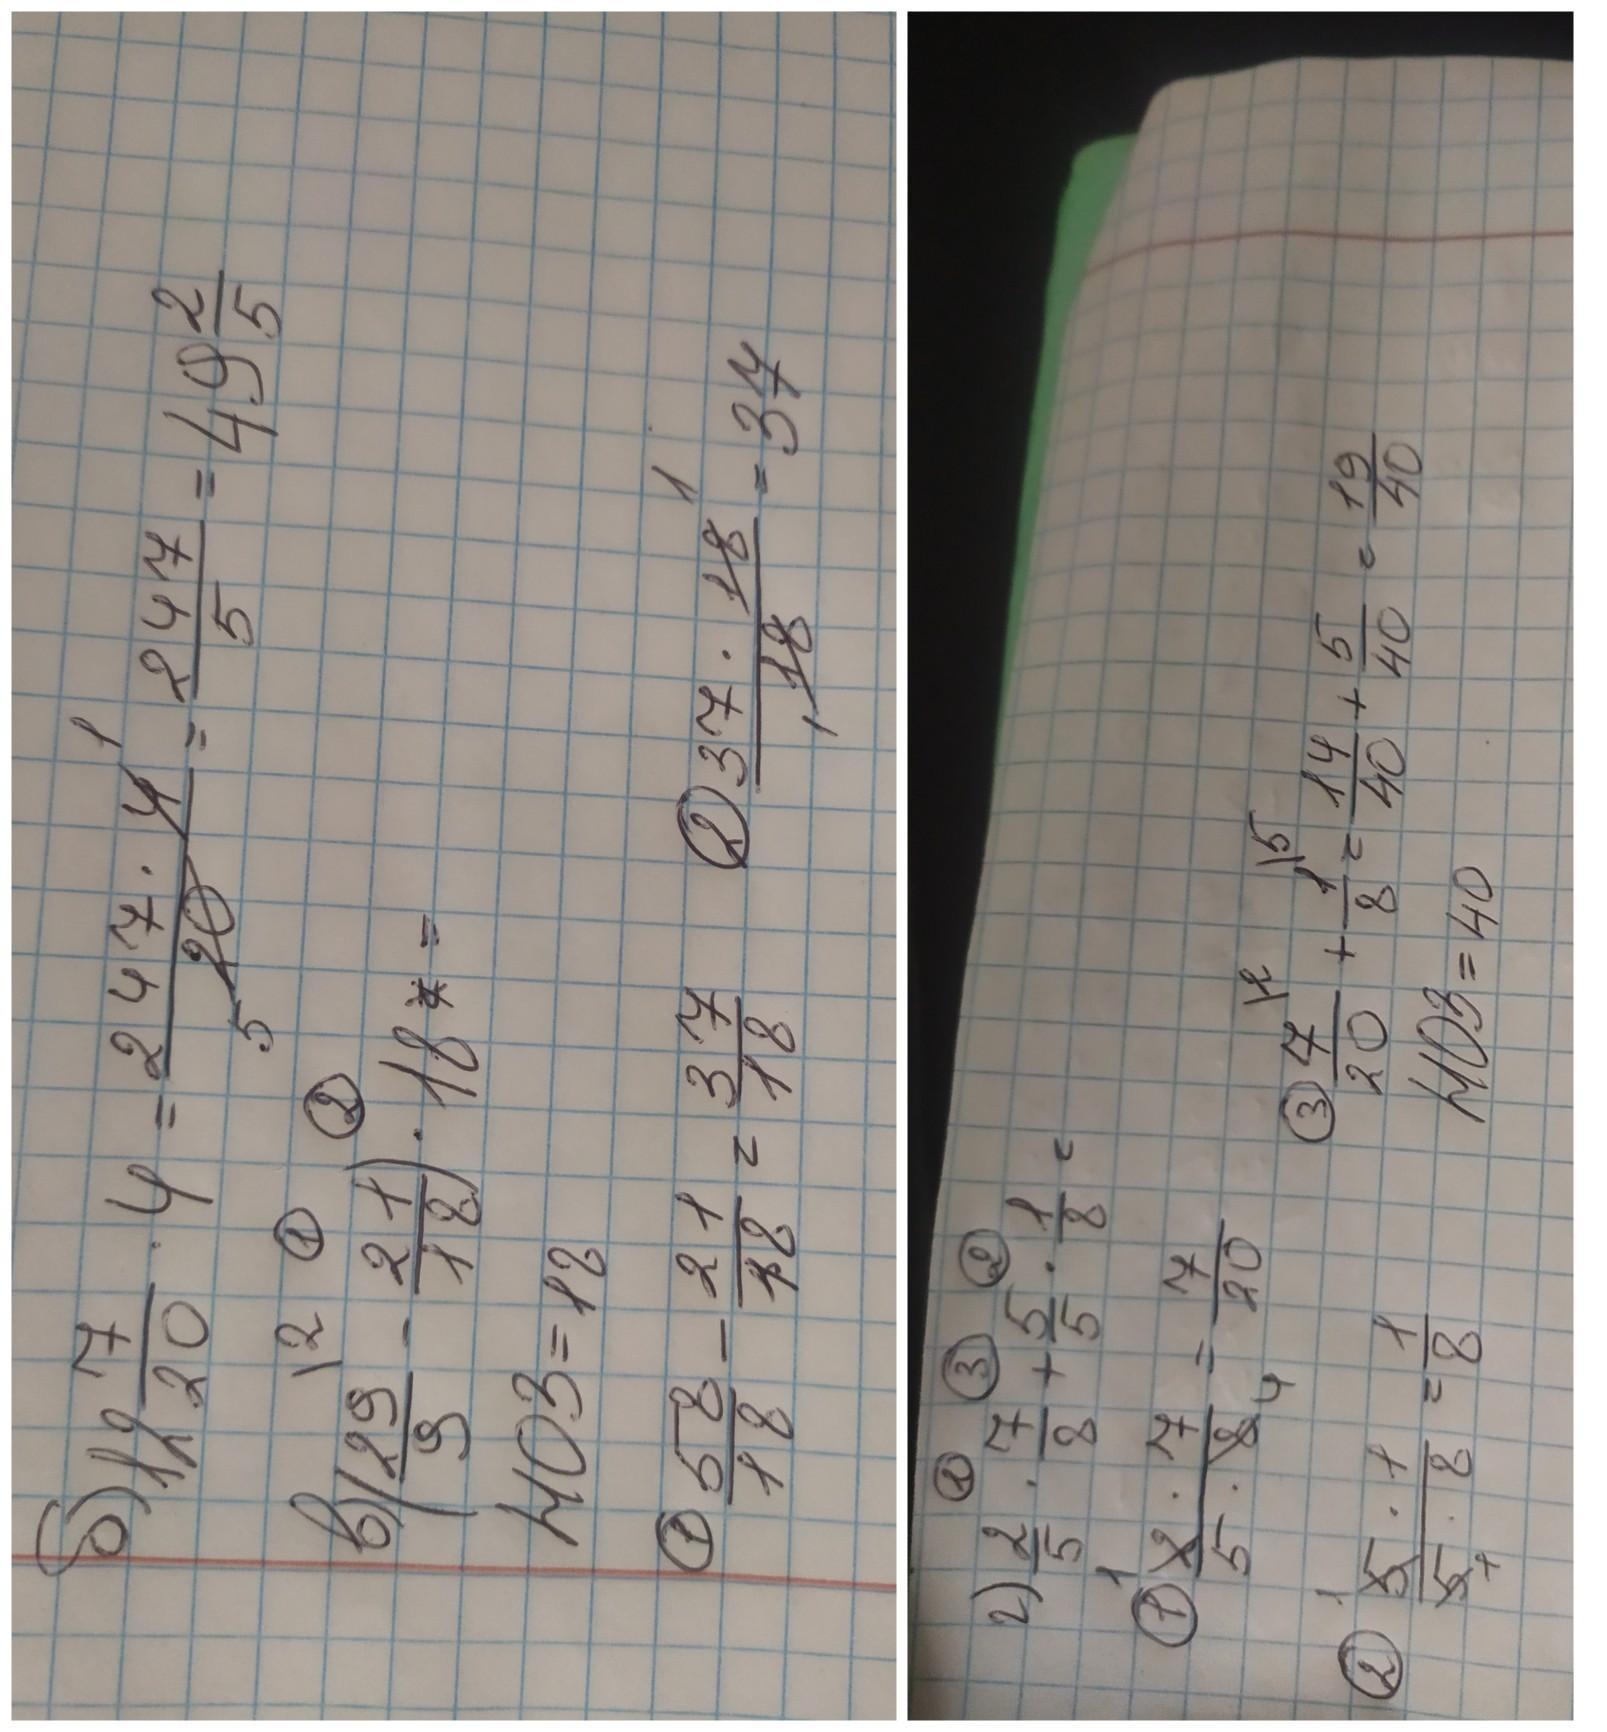 б) 12 7/20 · 4 = 247 · 4/20 = 247/5 = 49 2/5
1 5
\2 ① ②
в) (29/9 - 21/18) · 18 =
НОЗ = 18
① 58/18 - 21/18 = 37/18 ② 37 · 18/18 = 37
1 1
① ③ ②
г) 2/5 · 7/8 + 5/5 · 1/8 =
① 2 · 7/5 · 8 = 7/20
1 4
② 5 · 1/5 · 8 = 1/8
1 1
③ 7/20 \2 + 1/8 \5 = 14/40 + 5/40 = 19/40
НОЗ = 40